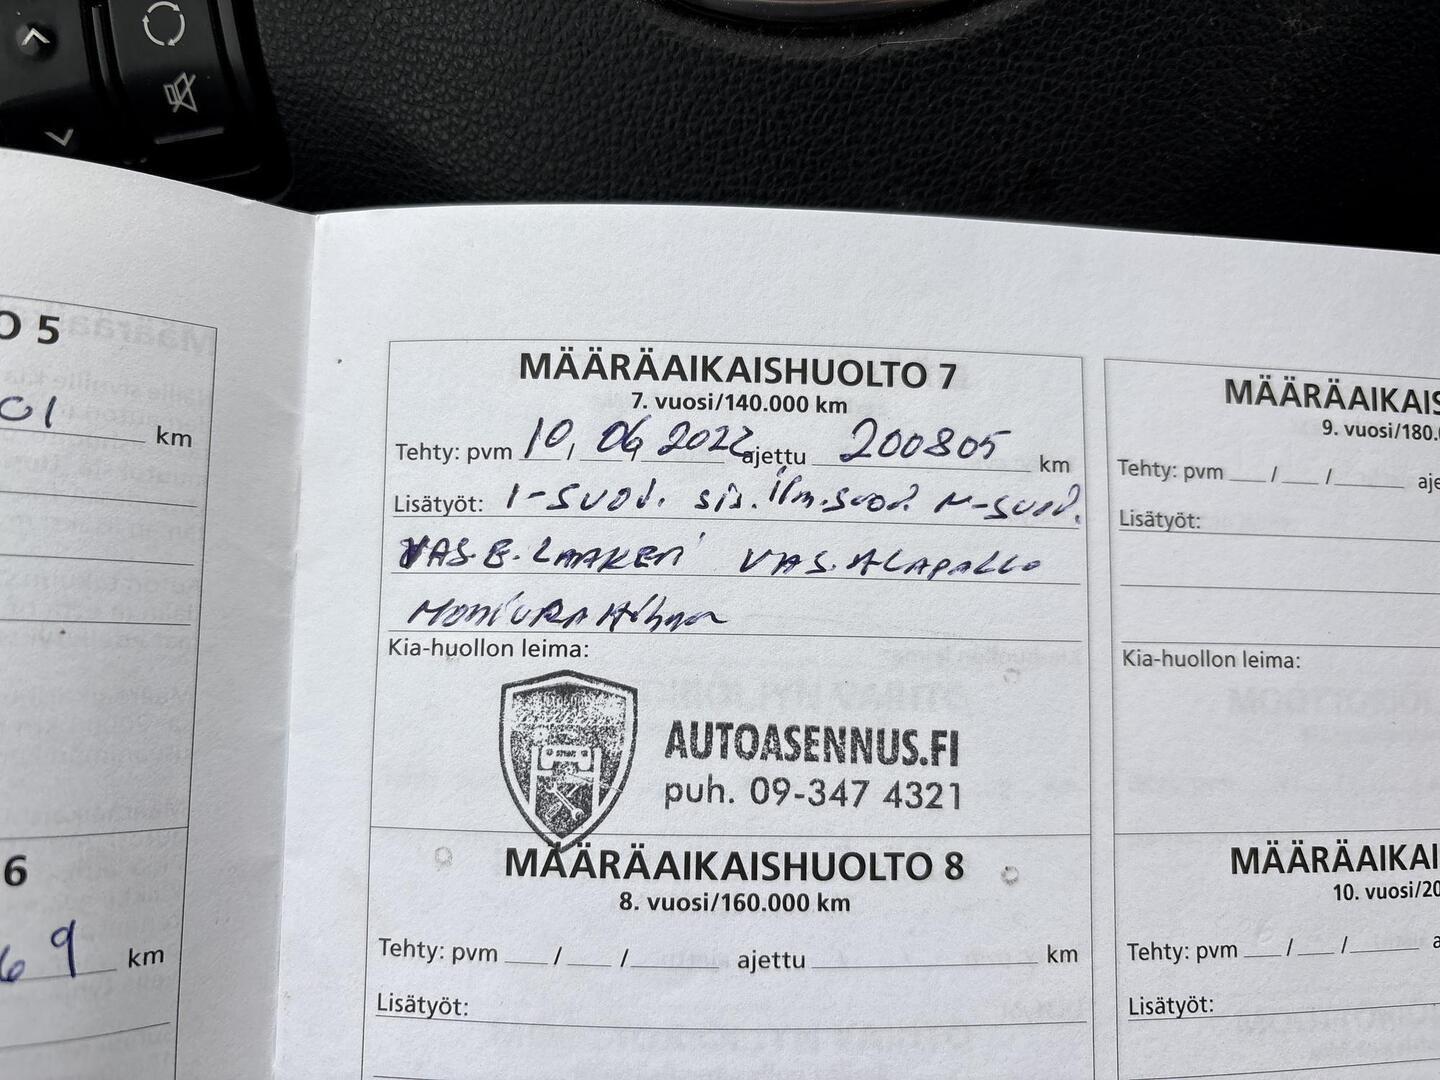 O 5
01 km
6
69 km
MÄÄRÄAIKAISHUOLTO 7
7. vuosi/140.000 km
Tehty: pvm 10/06/2022 ajettu 200805 km
Lisätyöt: I-SUOD. sis.ilm.suod. M-SUOD.
VAS.E.LAAKERI VAS.ALAPALLO
MONIURAHIHNA
Kia-huollon leima:
AUTOASENNUS.FI
puh. 09-347 4321
MÄÄRÄAIKAISHUOLTO 8
8. vuosi/160.000 km
Tehty: pvm __/__/____ ajettu ____ km
Lisätyöt:
MÄÄRÄAIKAIS
9. vuosi/180.
Tehty: pvm __/__/____ aje
Lisätyöt:
Kia-huollon leima:
MÄÄRÄAIKAI
10. vuosi/20
Tehty: pvm __/__/____ a
Lisätyöt: